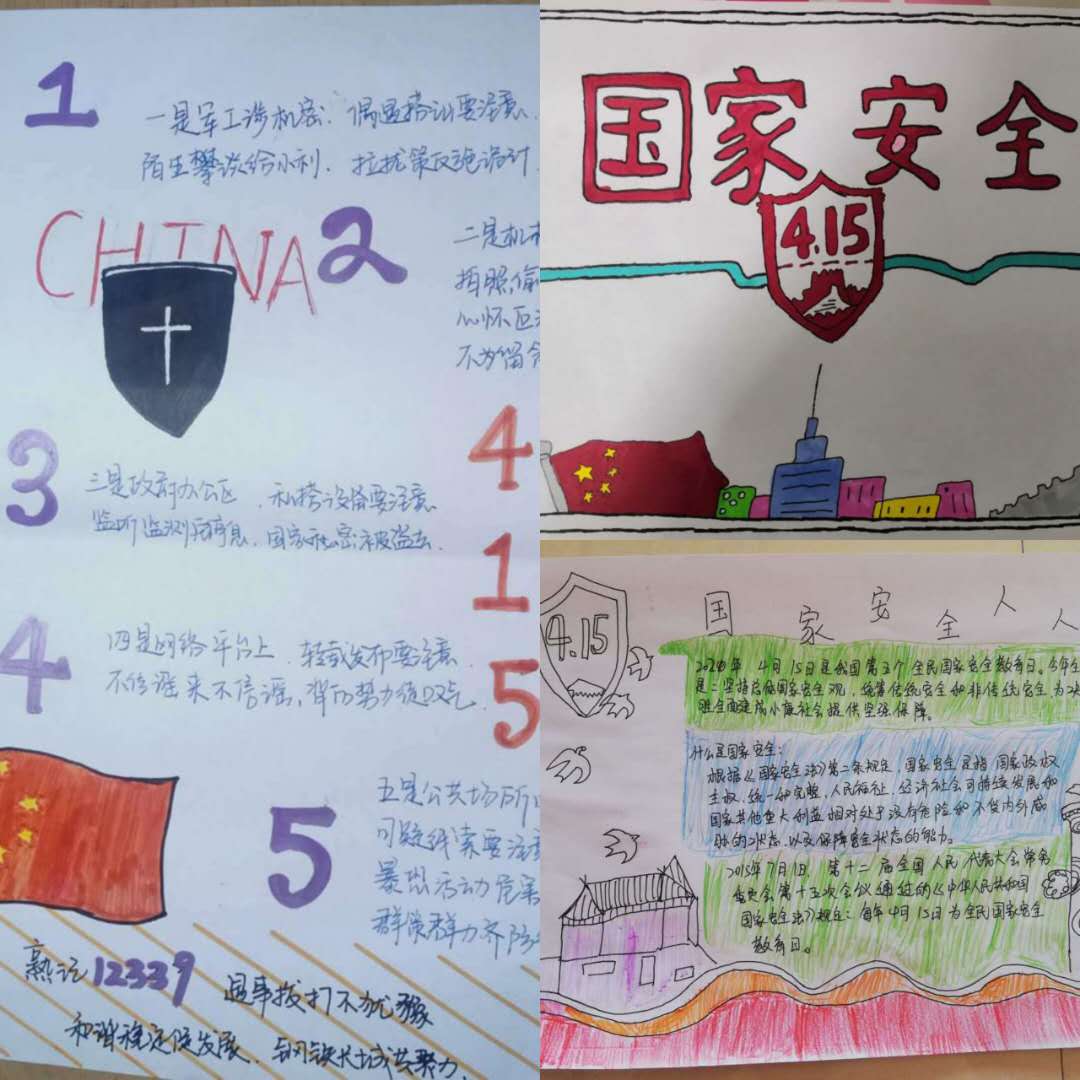 1
一是军工涉机密，偶遇搭讪要注意，
陌生攀谈给小利，拉拢策反施诡计
CHINA
2
二是机
拍照偷
心怀叵
不为留
3
三是政府办公区，私搭设备要注意
监听监测信息，国家秘密被盗去
4
四是网络平台上，转载发布要注意
不传谣来不信谣
4
1
5
5
五是公共场所
可疑线索要注意
暴恐活动危害
群策群力齐防
熟记12339 遇事拨打不犹豫
和谐稳定促发展，钢铁长城共聚力，
国家安全
4.15
4.15
国家安全人人
2020年 4月15日是我国第五个全民国家安全教育日。今年
是：坚持总体国家安全观，统筹传统安全和非传统安全，为决
胜全面建成小康社会提供坚强保障。
什么是国家安全：
根据《国家安全法》第二条规定，国家安全是指国家政权、
主权、统一和完整、人民福祉、经济社会可持续发展和
国家其他重大利益相对处于没有危险和不受内外威
胁的状态，以及保障安全状态的能力。
2015年7月1日，第十二届全国人民代表大会常务
委员会第十五次会议通过的《中华人民共和国
国家安全法》规定：每年4月15日为全民国家安全
教育日。